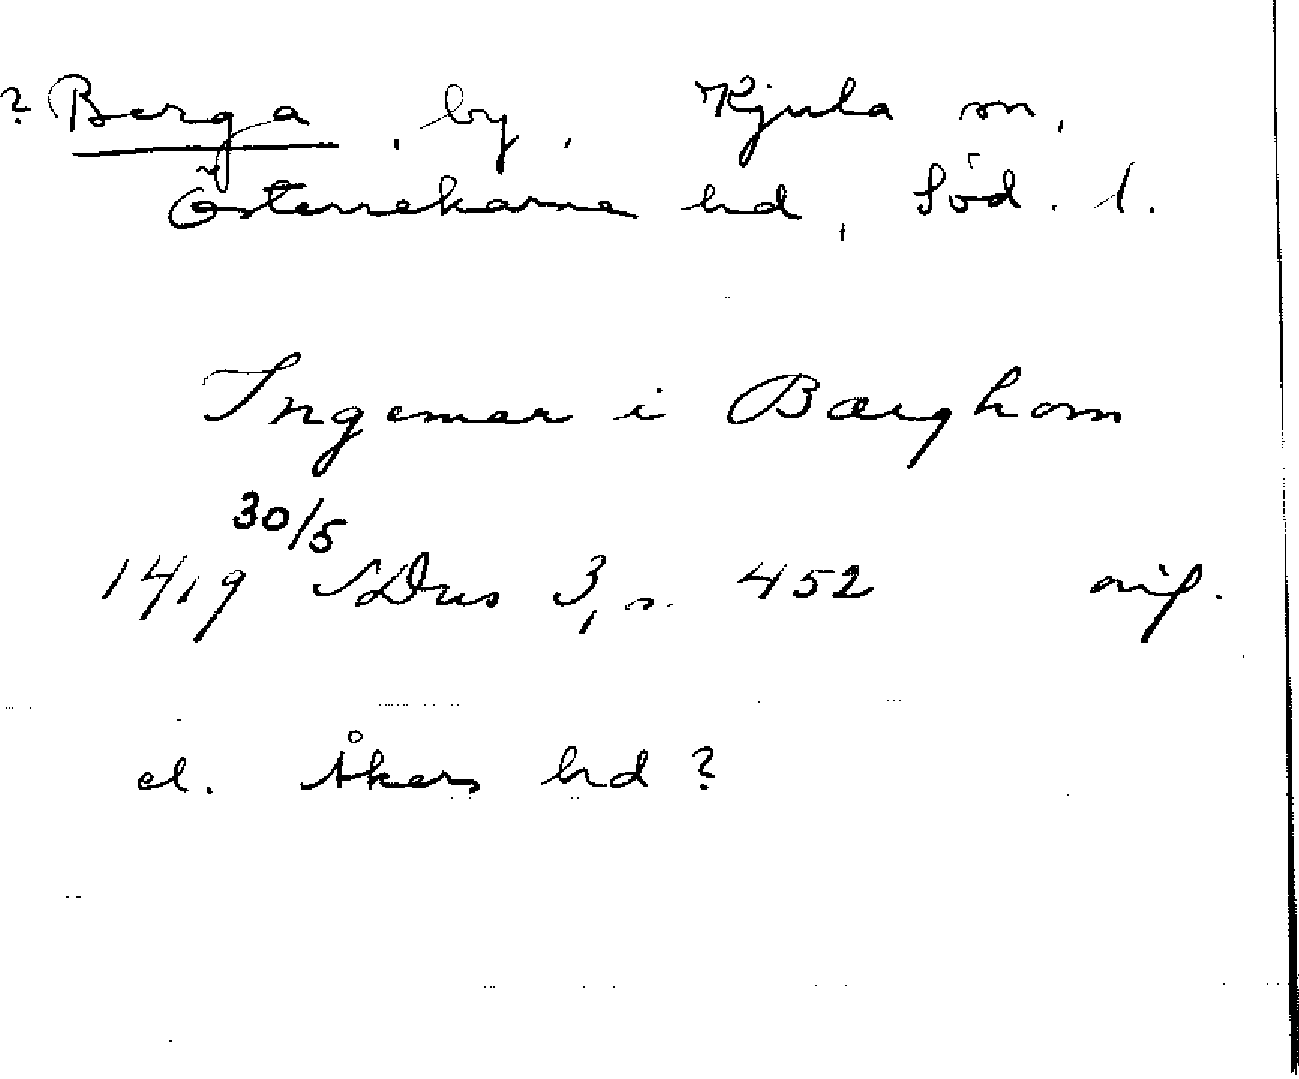 ? Berga, by, Kjula sn,
Österrekarne hd, Söd. l.
Ingemar i Bærghom
30/5
1419 SDns 3, s. 452 avf.
el. Åkers hd ?